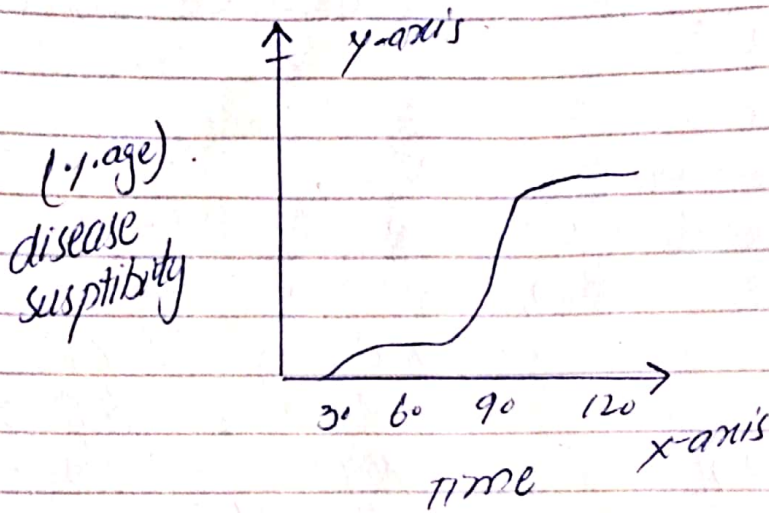 y-axis
(%age).
disease
susptibity
30 60 90 120
x-axis
Time